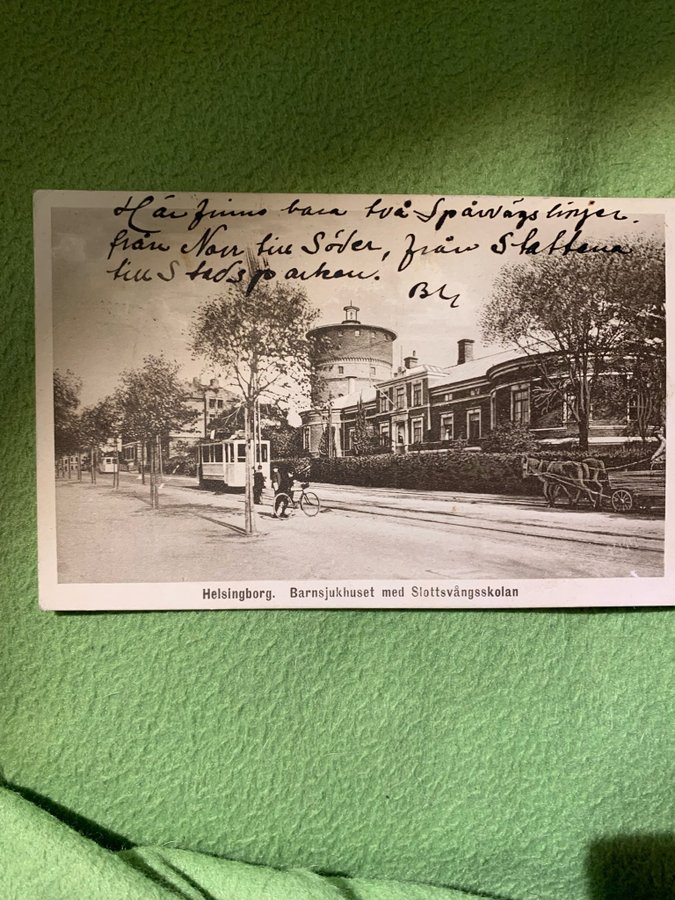 Här finns bara två Spårvägslinjer.
från Norr till Söder, från Slättena
till Stadsparken.
Helsingborg. Barnsjukhuset med Slottsvångsskolan